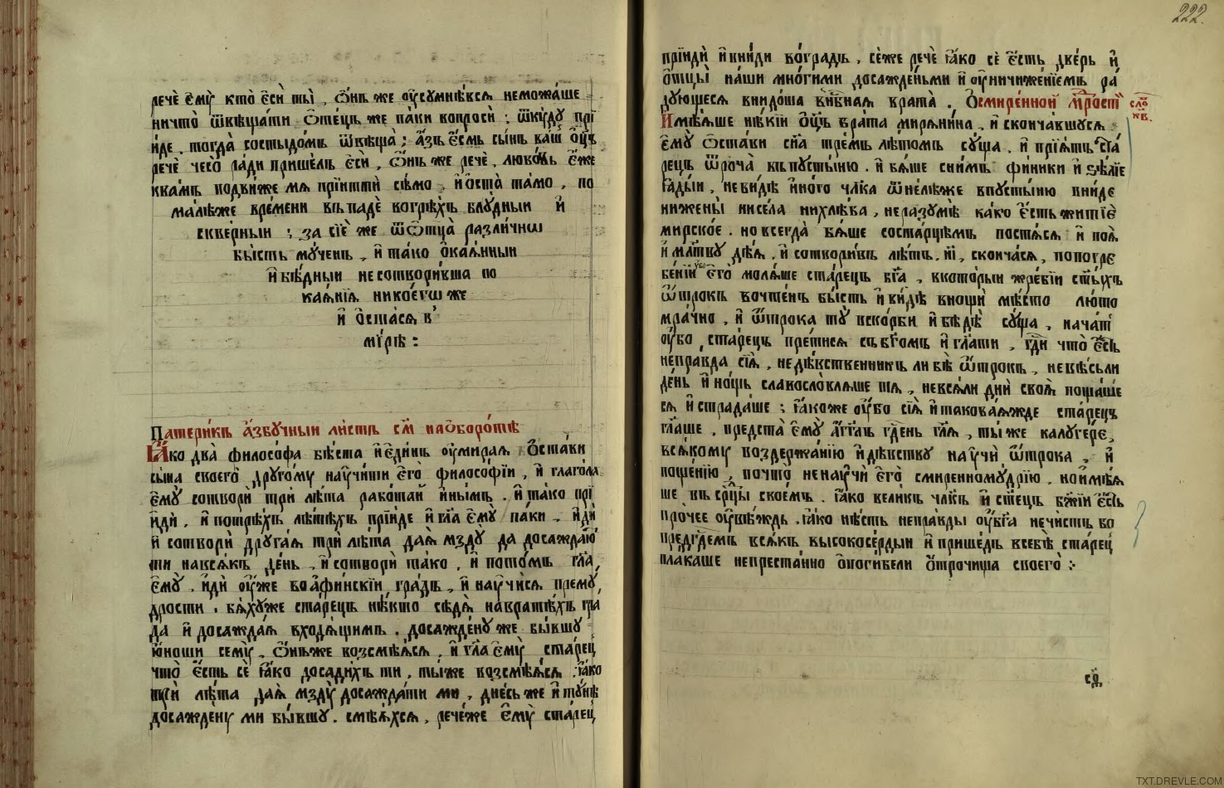 речѐ ємꙋ̀ кто̀ єсѝ ты̀ , ѻ҆́нъ же ᲂу҆сꙋмнѣ́всѧ неможа́ше
ничто̀ ѿвѣща́ти ѻ҆те́цъ же па́ки вопросѝ : ѿкꙋ́дꙋ прї
и́де , тогда̀ состыдо́мъ ѿвѣща̀ ; а҆́зъ є҆́смь сы́нъ ва́ш о҆ц҃ъ
речѐ чесо̀ ра́ди прише́лъ є҆сѝ , ѻ҆́нъ же речѐ , любо́вь є҆́же
ква́мъ подви́же мѧ̀ прїитѝ сѣ́мо . и҆ ѡ҆ста̀ та́мо , по
ма́лѣже вре́мени въпадѐ вогрѣ́хъ блꙋ́дныи и҆
скве́рныи : за сїѐ же ѿ ѻ҆тца̀ разли́чнѡ
бы́сть мꙋ́ченъ , и҆ та́ко ѻ҆каѧ́нныи
и҆ бѣ́дныи несотвори́вша по
каѧ́нїѧ нико́егѡ же
и҆ ѡ҆ста́сѧ в̾
ми́рѣ :
Патери́къ а҆́збꙋчныи ли́стъ см҃ наѡ҆боро́тѣ
Ꙗ҆́ко два̀ фило́софа бѣ́ста и҆ є҆ди́нъ ᲂу҆мира́ѧ ѡ҆ста́ви
сы́на своего̀ дрꙋго́мꙋ наꙋчи́ти є҆го̀ филосо́фїи , и҆ глаго́ла
є҆мꙋ̀ сотворѝ трѝ лѣ́та рабо́таи и҆ны́мъ . и҆ та́ко прї
и҆дѝ , и҆ потрїе́хъ лѣ́тѣхъ прїи́де и҆ гл҃а є҆мꙋ̀ па́ки . и҆дѝ
и҆ сотворѝ дрꙋга́ѧ трѝ лѣ́та даѧ̀ мздꙋ̀ да досажда́ю
ти навсѧ́къ де́нь , и҆ сотворѝ та́ко , и҆ пото́мъ гл҃а
є҆мꙋ̀ . и҆дѝ ᲂу҆́же во а҆фи́нскїи гра́дъ , и҆ наꙋчи́сѧ премꙋ́
дрости . бѧ́хꙋже ста́рецъ нѣ́кто сѣдѧ̀ навратѣ́хъ гра
да и҆ досажда́ѧ входѧ́щимъ . досажде́нꙋ же бы́вшꙋ
ю҆́ноши семꙋ̀ , ѻ҆́нъже возсмѣѧ́сѧ , и҆ гл҃а є҆мꙋ̀ ста́рец
что̀ є҆́сть сѐ ꙗ҆́ко досади́хъ ти , ты́же возсмѣѧ́сѧ . ꙗ҆́ко
трѝ лѣ́та даѧ̀ мздꙋ̀ досажда́ти ми , дне́сь же и҆ тꙋ́нѣ
досажде́нꙋ ми бы́вшꙋ , смѣѧ́хсѧ , рече́же є҆мꙋ̀ ста́рец
222.
прїидѝ и҆ вни́ди во гра́дъ . се́же речѐ ꙗ҆́ко сѐ є҆́сть две́рь и҆
о҆тцы̀ на́ши мно́гими досажде́ньми и҆ ᲂу҆ничиже́нїемъ ра́
дꙋющесѧ внидо́ша вни́бнаѧ врата̀ . Ѡ҆ смире́нной мр҃ости сло́
Имѣ́ѧше нѣ́кїи о҆ц҃ъ бра́та мирѧни́на , и҆ сконча́вшꙋсѧ нв.
є҆мꙋ̀ ѡ҆ста́ви сн҃а тре́мъ лѣ́томъ сꙋ́ща . и҆ прїѧ́тъ ста
ре́цъ ѻ҆троча̀ въпꙋсты́ню . и҆ бѧ́ше сни́мъ фи́ники и҆ ѕе́лїе
ꙗ҆ды́и , невидѣ̀ и҆но́го чл҃ка ѿне́лѣже впꙋсты́ню вни́де
нижены̀ нисела̀ нихлѣ́ба , неразꙋмѣ̀ ка́ко є҆́сть житїѐ
мирско́е . но всегда̀ бѧ́ше соста́рцемъ постѧ́сѧ и҆ поѧ̀
и҆ мл҃твꙋ дѣ́ѧ , и҆ сотвори́въ лѣ́тъ . н҃ї , сконча́сѧ , попогре
бе́нїи є҆го̀ молѧ́ше ста́рецъ бг҃а , вкото́рыи жре́бїи ст҃ы́хъ
ѻ҆́трокъ вочте́нъ бы́сть и҆ ви́дѣ вно́щи мѣ́сто лю́то
мра́чно , и҆ ѻ҆́трока тꙋ̀ вско́рби и҆ бѣдѣ̀ сꙋ́ща , нача́т
ᲂу҆́бо , ста́рецъ пре́тисѧ съ бг҃омъ и҆ гл҃ати , гд҃и что̀ є҆́сть
непра́вда сїѧ̀ , недѣ́вственникъ ли бѣ̀ ѻ҆́трокъ , невсѣ́сь ли
де́нь и҆ но́щь славосло́влѧше тѧ̀ , невсѧ́ ли дни̑ своѧ̑ пощѧ́ше
сѧ и҆ страда́ше : ꙗ҆́коже ᲂу҆́бо сїѧ̀ и҆ такова́ѧжде ста́рецъ
гл҃аше , предста̀ є҆мꙋ̀ а҆гг҃лъ гд҃ень гл҃ѧ , ты́ же калꙋ́гере ,
всѧ́комꙋ воздержа́нїю и҆ дѣ́вствꙋ наꙋчѝ ѻ҆́трока , и҆
поще́нїю , почто̀ ненаꙋчѝ є҆го̀ смиренномꙋ́дрїю . но и҆мѣ́ѧ
ше въ ср҃цы̀ свое́мъ . ꙗ҆́ко вели́къ чл҃къ и҆ ст҃е́цъ бж҃їи є҆́сть
про́чее ᲂу҆вѣ́ждь . ꙗ҆́ко нѣ́сть непра́вды ᲂу҆ бг҃а нечи́стъ бо
пред̾ гд҃емъ всѧ́къ высокосе́рдыи и҆ прише́дъ всебѐ ста́рец
пла́каше непреста́нно ѡ҆ поги́бели ѻ҆тро́чища своего̀ :
TXT.DREVLE.COM